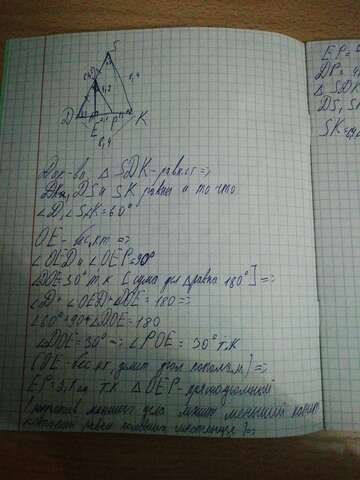 S
8,4
4,2
D
E
P
K
8,4
Док-во, △ SDK - равност =>
DK, DS и SK равны и то что
∠D, ∠S, ∠K = 60°
OE - бис, кт. =>
∠OED и ∠OEP = 90°
∠DOE = 30° т.к [сума угл △ равна 180°] =>
∠D + ∠OED + ∠DOE = 180 =>
∠60° + 90 + ∠DOE = 180
∠DOE = 30° => ∠POE = 30° т.к
[OE - бис, делит угол пополам] =>
EP = 2,1 см т.к △OEP - прямоугольный
(напротив меньшего угла лежит меньший катет
который равен половине гипотенузы) =>
EP =
DP =
△ SDK
DS, S
SK =